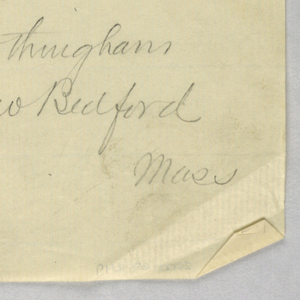 thinghans
w Bedford
Mass